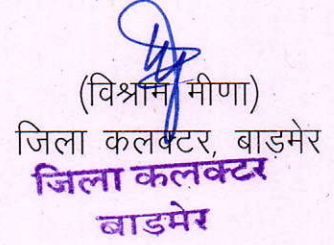 (विश्राम मीणा)
जिला कलक्टर, बाड़मेर
जिला कलक्टर
बाडमेर